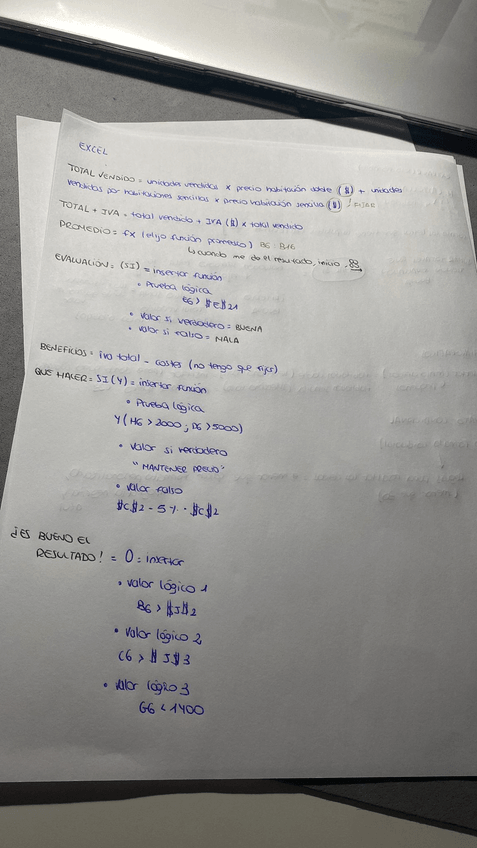 EXCEL
TOTAL VENDIDO = unidades vendidas x precio habitación doble ($) + unidades
vendidas por habitaciones sencillas x precio habitación sencilla ($) FIJAR
TOTAL + IVA = total vendido + IVA ($) x total vendido
PROMEDIO = fx (elijo función promedio) B6:B16
↳ cuando me da el resultado, inicio,
EVALUACIÓN = (SI) = insertar función
• Prueba lógica
E6 > $E$21
• Valor si verdadero = BUENA
• Valor si falso = MALA
BENEFICIOS = iva total - costes (no tengo que fijar)
QUE HACER = SI (Y) = insertar función
• Prueba lógica
Y (H6 > 2000 ; D6 > 5000)
• Valor si verdadero
"MANTENER PRECIO"
• Valor falso
$C$2 - 5% · $C$2
¿ES BUENO EL
RESULTADO? = O = insertar
• Valor lógico 1
B6 > $J$2
• Valor lógico 2
C6 > $J$3
• Valor lógico 3
G6 < 1400